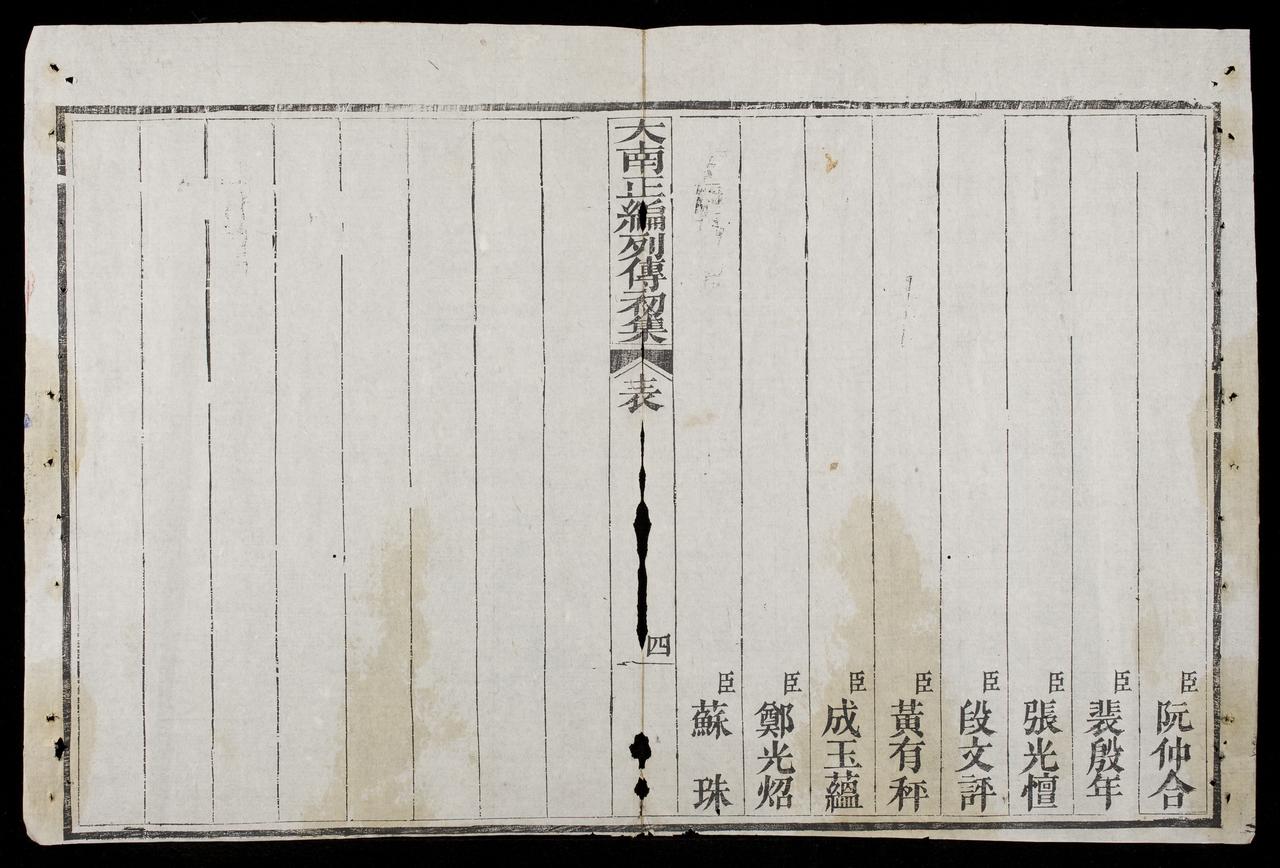 臣阮仲合
臣裴殷年
臣張光憻
臣段文評
臣黃有秤
臣成玉蘊
臣鄭光炤
臣蘇珠
大南正編列傳初集
表
四